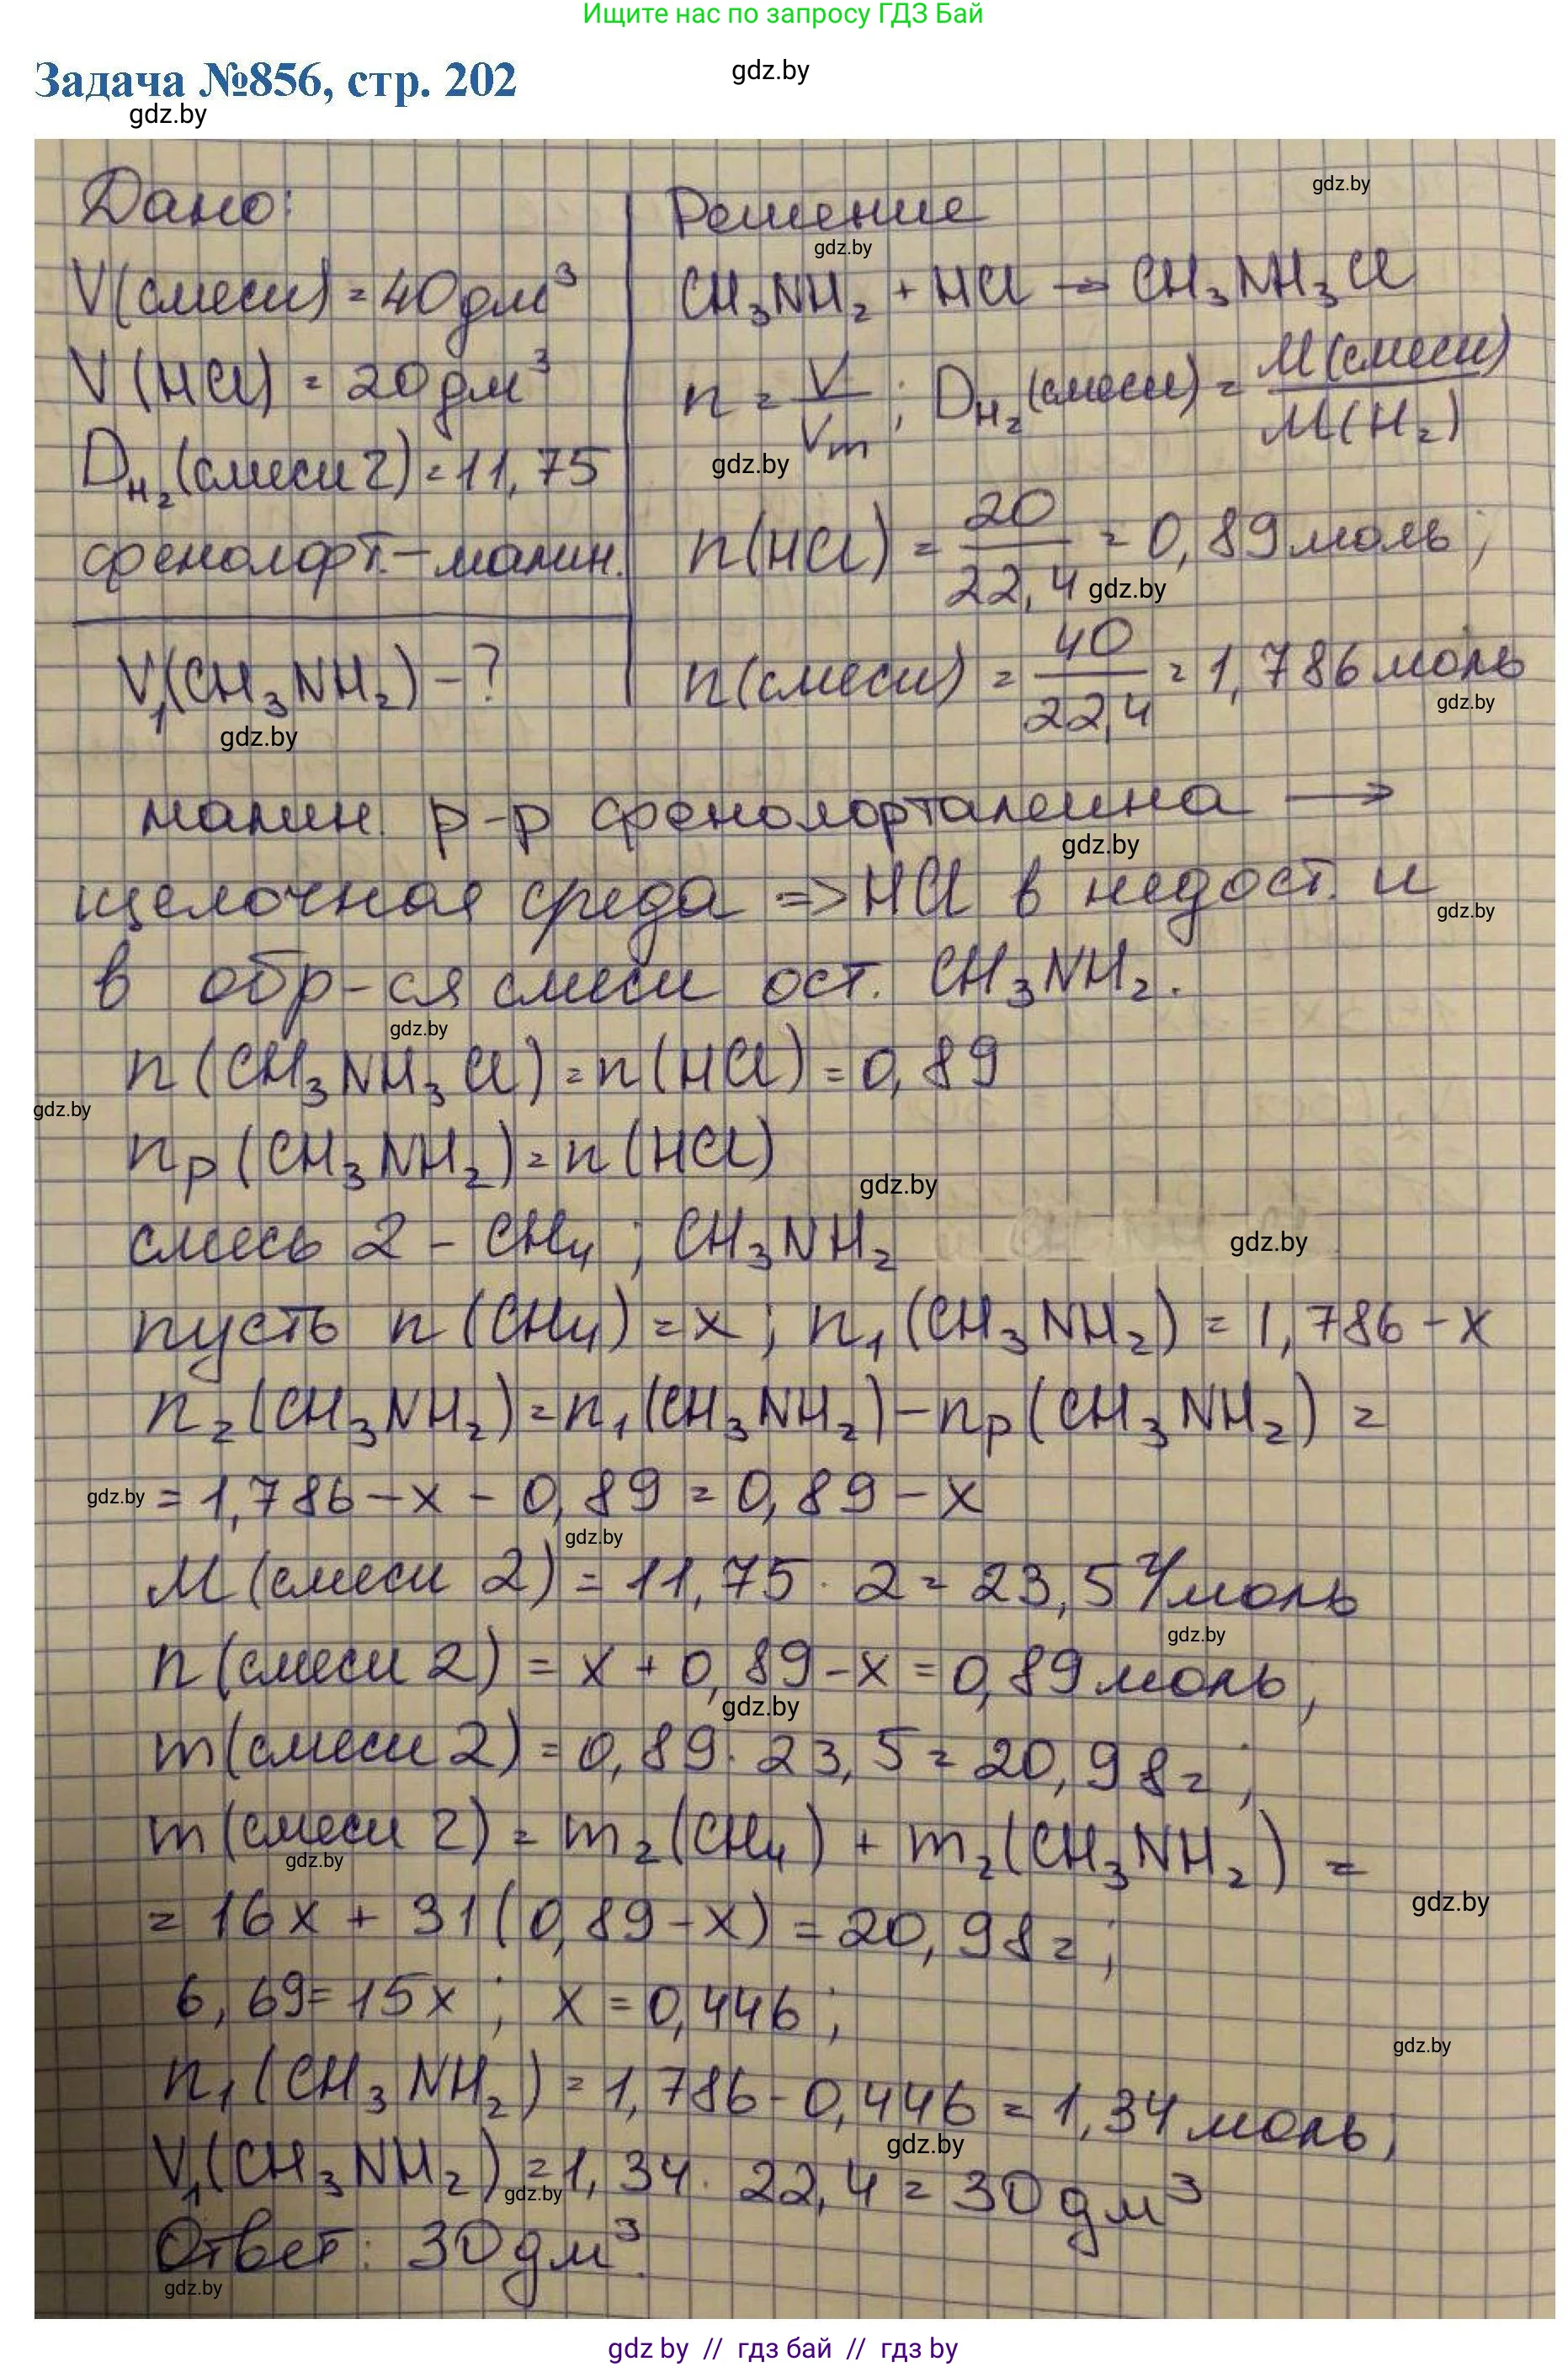 Ищите нас по запросу ГДЗ Бай
Задача №856, стр. 202
gdz.by
gdz.by
Дано:
V(смеси) = 40 дм³
V(HCl) = 20 дм³
D_H₂(смеси 2) = 11,75
фенолфт. – малин.
V₁(CH₃NH₂) – ?
gdz.by
Решение
gdz.by
gdz.by
CH₃NH₂ + HCl → CH₃NH₃Cl
n = V/Vm; D_H₂(смеси) = M(смеси)/M(H₂)
gdz.by
n(HCl) = 20/22,4 = 0,89 моль;
gdz.by
n(смеси) = 40/22,4 = 1,786 моль
gdz.by
малин. р-р фенолорталеина →
gdz.by
щелочная среда => HCl в недост. и
gdz.by
в обр-ся смеси ост. CH₃NH₂.
gdz.by
n(CH₃NH₃Cl) = n(HCl) = 0,89
gdz.by
nр(CH₃NH₂) = n(HCl)
gdz.by
смесь 2 – CH₄; CH₃NH₂
gdz.by
пусть n(CH₄) = x; n₁(CH₃NH₂) = 1,786 – x
n₂(CH₃NH₂) = n₁(CH₃NH₂) – nр(CH₃NH₂) =
gdz.by
= 1,786 – x – 0,89 = 0,89 – x
gdz.by
M(смеси 2) = 11,75 · 2 = 23,5 г/моль
gdz.by
n(смеси 2) = x + 0,89 – x = 0,89 моль;
gdz.by
m(смеси 2) = 0,89 · 23,5 = 20,98 г;
m(смеси 2) = m₂(CH₄) + m₂(CH₃NH₂) =
gdz.by
gdz.by
= 16x + 31(0,89 – x) = 20,98 г;
6,69 = 15x; x = 0,446;
gdz.by
n₁(CH₃NH₂) = 1,786 – 0,446 = 1,34 моль;
gdz.by
V₁(CH₃NH₂) = 1,34 · 22,4 = 30 дм³
gdz.by
Ответ: 30 дм³.
gdz.by
gdz by // гдз бай // гдз by